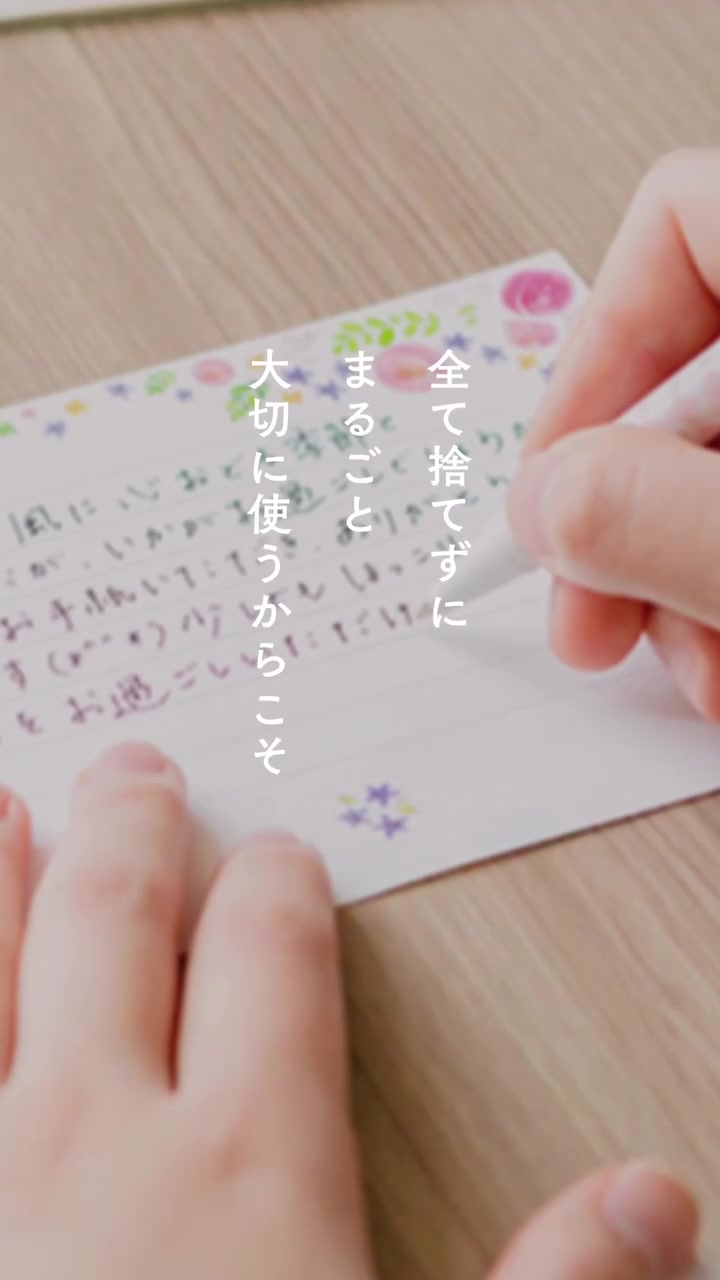 全て捨てずに
まるごと
大切に使うからこそ
風に心おどる季節と
が、いかがお過ごしでしょうか
お手紙いただき、ありがとう
す(^^*)少しでもほっこり
をお過ごしいただけ